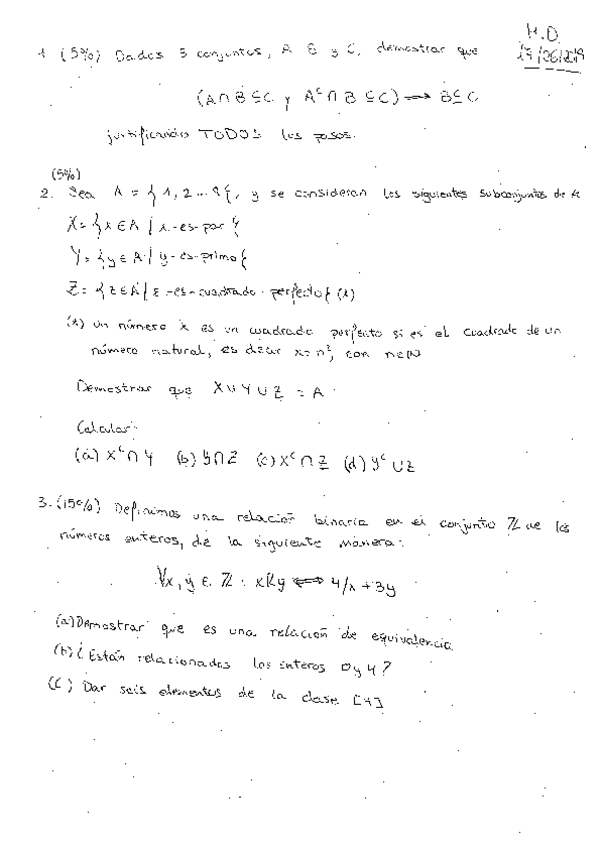 M.D.
17/06/2019
1 (5%) Dados 3 conjuntos, A B y C, demostrar que
(A∩B⊆C y Aᶜ∩B⊆C) → B⊆C
justificando TODOS los pasos.
(5%)
2. Sea A = {1, 2 ... 9}, y se consideran los siguientes subconjuntos de A
X = {x ∈ A / x-es-par}
Y = {y ∈ A / y-es-primo}
Z = {z ∈ A / z-es-cuadrado-perfecto} (*)
(*) Un número x es un cuadrado perfecto si es el cuadrado de un
número natural, es decir x=n², con n∈ℕ
Demostrar que X∪Y∪Z = A
Calcular:
(a) Xᶜ∩Y (b) Y∩Z (c) Xᶜ∩Z (d) Yᶜ∪Z
3. (15%) Definimos una relación binaria en el conjunto ℤ de los
números enteros, de la siguiente manera:
∀x, y ∈ ℤ : xRy ⟺ 4/x+3y
(a) Demostrar que es una relación de equivalencia
(b) ¿Están relacionados los enteros 0 y 4?
(c) Dar seis elementos de la clase [4]